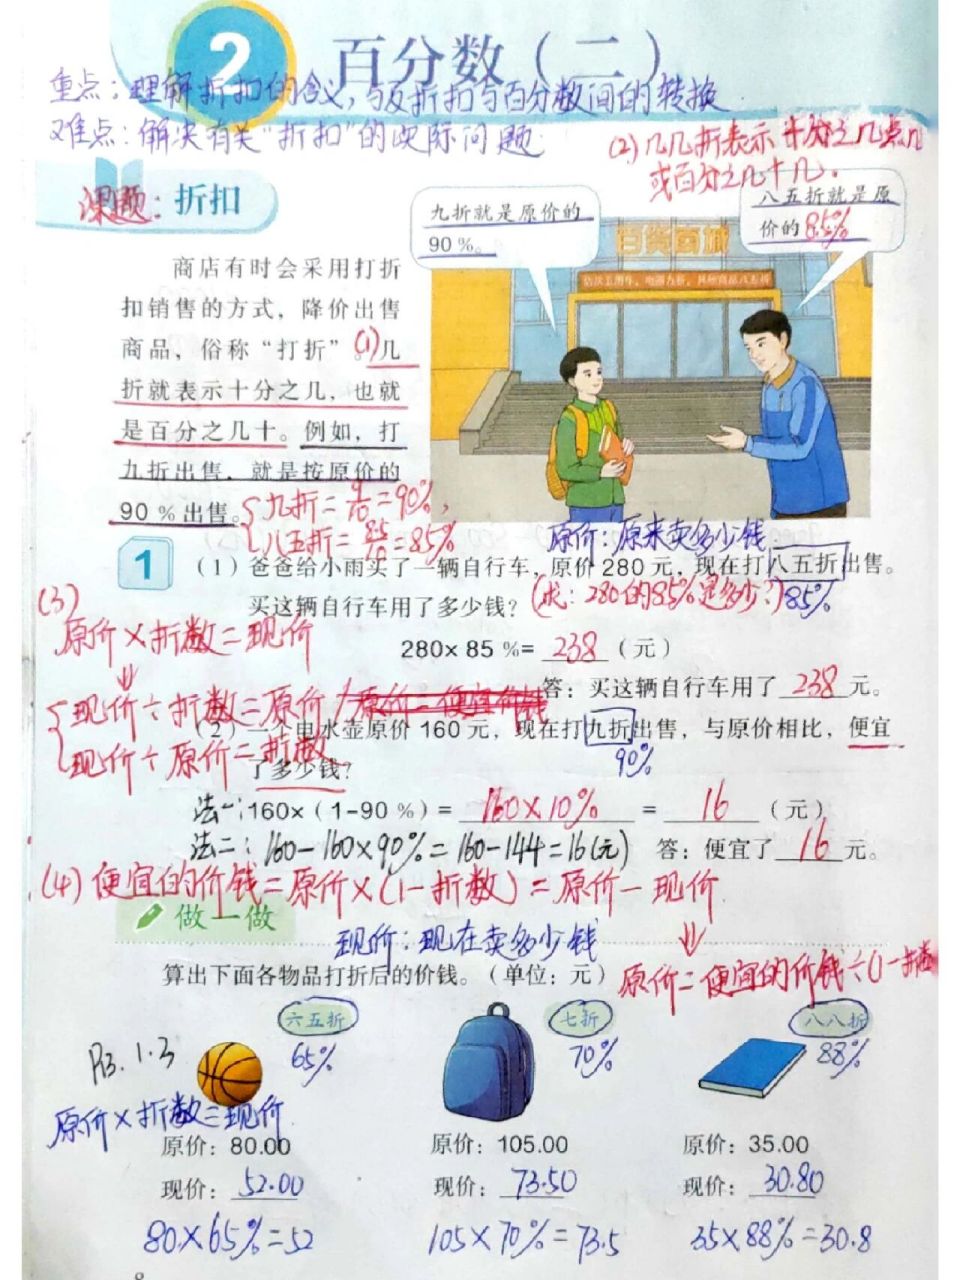 2 百分数（二）
重点：理解折扣的含义，与及折扣与百分数间的转换
难点：解决有关“折扣”的实际问题
(2)几几折表示十分之几点几
或百分之几十几.
课题：折扣
九折就是原价的
90 %。
八五折就是原
价的85%
百货商城
商店有时会采用打折
扣销售的方式，降价出售
商品，俗称“打折”。(1)几
折就表示十分之几，也就
是百分之几十。例如，打
九折出售，就是按原价的
90 %出售。
九折=9/10=90%,
八五折=8.5/10=85%
原价：原来卖多少钱
1 （1）爸爸给小雨买了一辆自行车，原价 280 元，现在打八五折出售。
买这辆自行车用了多少钱？(求：280的85%是多少?)85%
(3)
原价×折数=现价
280× 85 %= 238 （元）
答：买这辆自行车用了 238 元。
现价÷折数=原价
现价÷原价=折数
（2）一个电水壶原价 160 元，现在打九折出售，与原价相比，便宜
90%
了多少钱？
法一：160×（1-90 %）= 160×10% = 16 （元）
法二：160-160×90%=160-144=16(元) 答：便宜了 16 元。
(4)便宜的价钱=原价×(1-折数)=原价-现价
做一做
现价：现在卖多少钱
算出下面各物品打折后的价钱。（单位：元）
原价=便宜的价钱÷(1-折数
六五折 七折 八八折
65% 70% 88%
P13.1.3
原价×折数=现价
原价：80.00 原价：105.00 原价：35.00
现价：52.00 现价：73.50 现价：30.80
80×65%=52 105×70%=73.5 35×88%=30.8
8